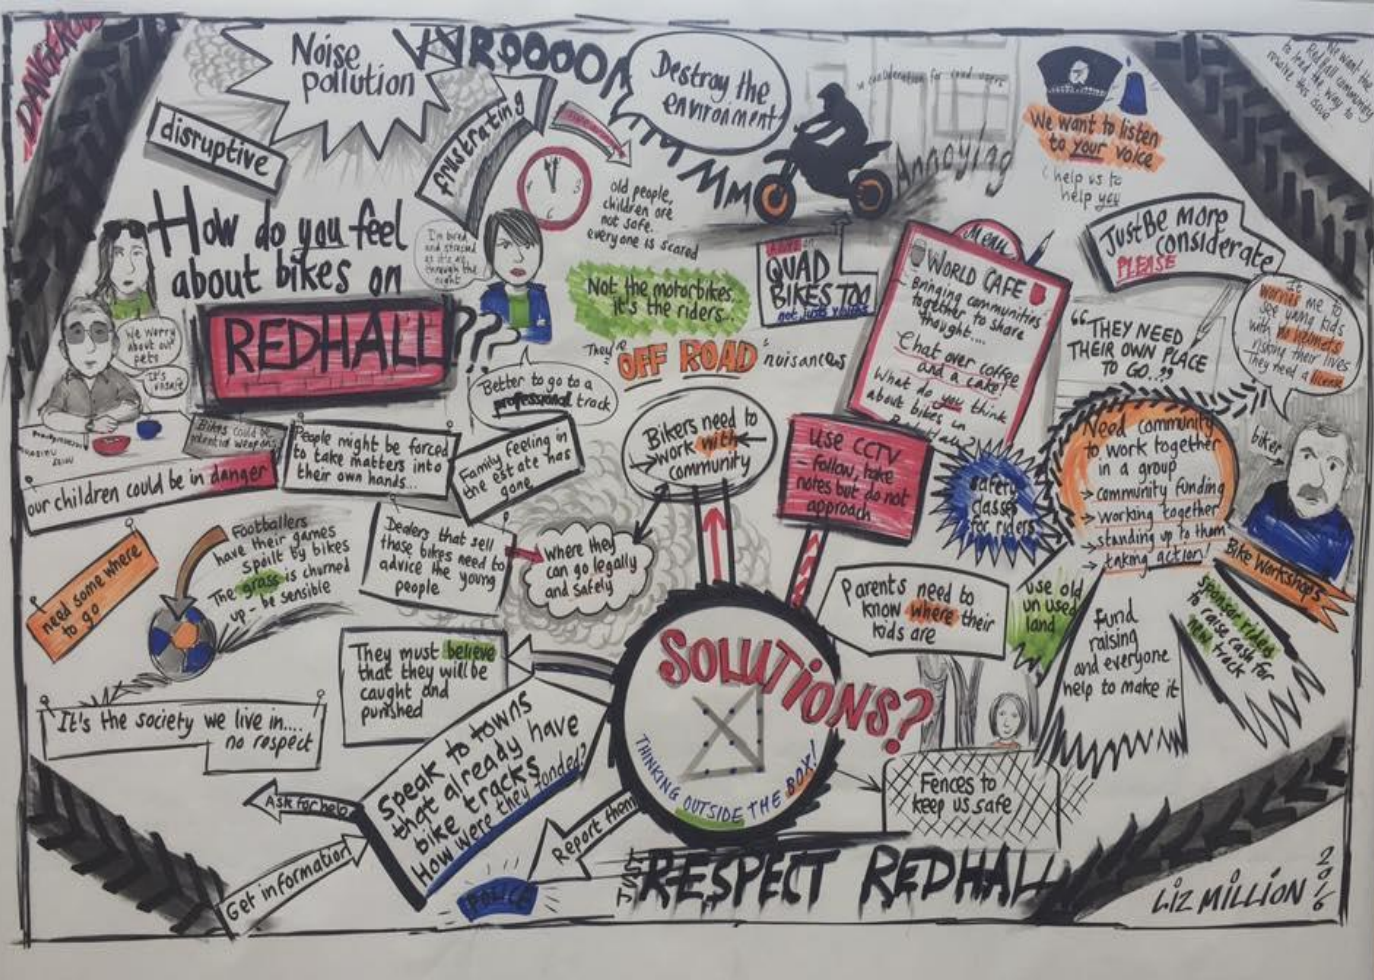 DANGEROUS
Noise
pollution
VVROOOOMMMMM
Destroy the
environment
disruptive
frustrating
Annoying
We want to listen
to your voice
help us to
help you
We want the
Redhall community
to lead the way to
resolve this issue
How do you feel
about bikes on
REDHALL???
I'm tired
and stressed
as it's all
through the
night
old people,
children are
not safe..
everyone is scared
Not the motorbikes..
it's the riders...
They're OFF ROAD "nuisances
QUAD
BIKES TOO
Menu
WORLD CAFE
Bringing communities
together to share
thought....
Chat over coffee
and a cake!
What do you think
about bikes in
Redhall?
Just Be more
considerate
PLEASE
"THEY NEED
THEIR OWN PLACE
TO GO.."
It
worries me to
see young kids
with no helmets
risking their lives
they need a license
biker
We worry
about our
pets
It's
unsafe
Better to go to a
professional track
Bikes could be
potential weapons
our children could be in danger
People might be forced
to take matters into
their own hands...
Family feeling in
the estate has
gone
Bikers need to
work with
community
USE CCTV
- follow, take
notes but do not
approach
safety
classes
for riders
Need community
to work together
in a group
→ community funding
→ working together
→ standing up to them
→ taking action!
Bike Workshops
need some where
to go
Footballers
have their games
spoilt by bikes
The grass is churned
up - be sensible
Dealers that sell
those bikes need to
advice the young
people
where they
can go legally
and safely
Parents need to
know where their
kids are
use old
un used
land
Fund
raising
and everyone
help to make it
sponsor rides
to raise cash for
new track
They must believe
that they will be
caught and
punished
It's the society we live in....
no respect
SOLUTIONS?
THINKING OUTSIDE THE BOX!
Speak to towns
that already have
bike tracks
How were they funded?
Ask for help
Get information
Report them
POLICE
Fences to
keep us safe
JUST RESPECT REDHALL
LIZ MILLION 2016